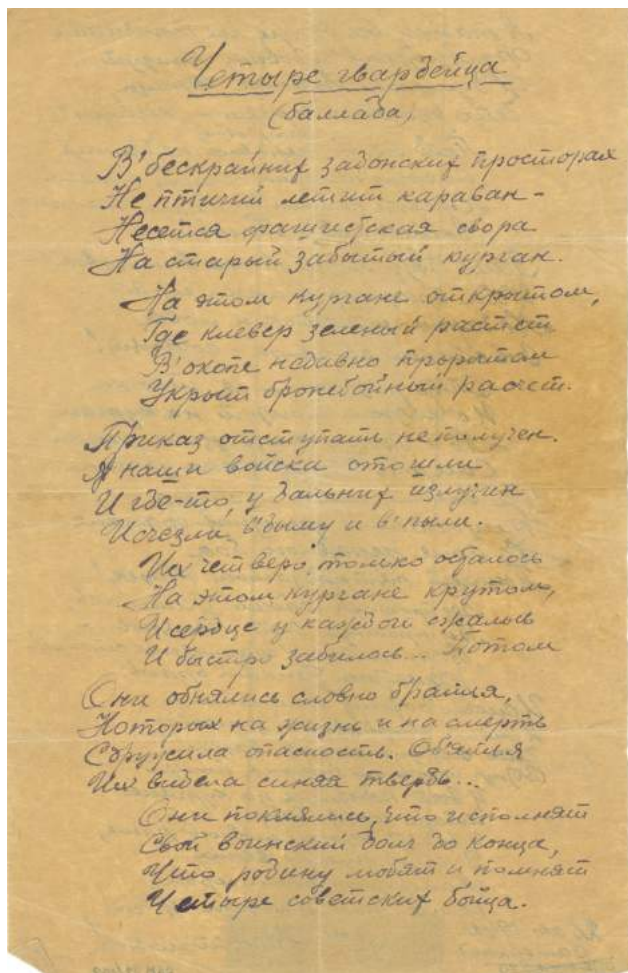 Четыре гвардейца
(баллада)
В'бескрайних задонских просторах
Не птичий летит караван -
Несется фашистская свора
На старый забытый курган.
На этом кургане открытом,
Где клевер зеленый растет
В'окопе недавно прорытом
Укрыт бронебойный расчет.
Приказ отступать не получен.
А наши войска отошли
И где-то, у дальних излучин
Исчезли в'дыму и в'пыли.
Их четверо только осталось
На этом кургане крутом,
И сердце у каждого сжалось
И быстро забилось... Потом
Они обнялись словно братья,
Которых на жизнь и на смерть
Сдружила опасность. Об'ятья
Их видела синяя твердь...
Они поклялись, что исполнят
Свой воинский долг до конца,
Что родину любят и помнят
Четыре советских бойца.